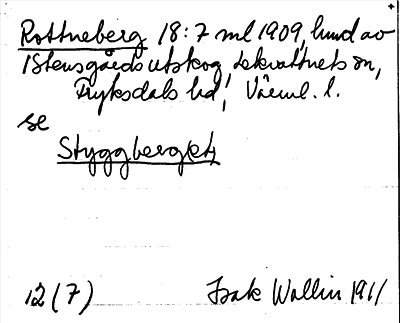 Rottneberg 18:7 ml 1909, hund av
Stensgårds utskog, Lekvattnets sn,
Fryksdals hd, Värml. l.
se
Styggberg(et)
12 (7) Isak Wallin 1911